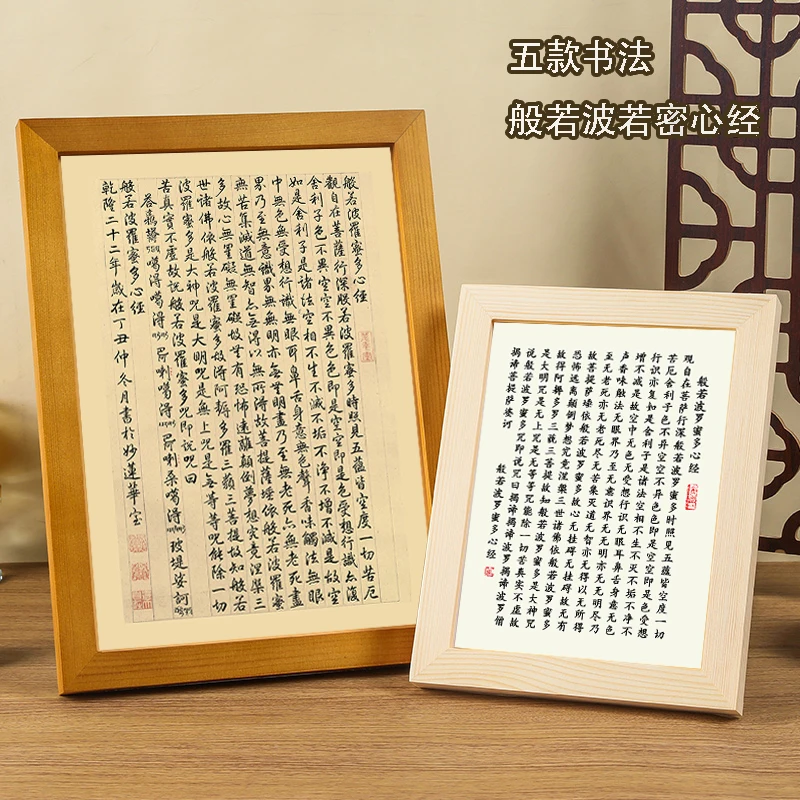 五款书法
般若波若密心经
般若波羅蜜多心經
觀自在菩薩行深般若波羅蜜多時照見五蘊皆空度一切苦厄
舍利子色不異空空不異色色即是空空即是色受想行識亦復
如是舍利子是諸法空相不生不滅不垢不淨不增不減是故空
中無色無受想行識無眼耳鼻舌身意無色聲香味觸法無眼
界乃至無意識界無無明亦無無明盡乃至無老死亦無老死盡
無苦集滅道無智亦無得以無所得故菩提薩埵依般若波羅蜜
多故心無罣礙無罣礙故無有恐怖遠離顛倒夢想究竟涅槃三
世諸佛依般若波羅蜜多故得阿耨多羅三藐三菩提故知般若
波羅蜜多是大神咒是大明咒是無上咒是無等等咒能除一切
苦真實不虛故說般若波羅蜜多咒即說咒曰
般若波羅蜜多心經
乾隆二十二年歲在丁丑仲冬月書於妙蓮華室
般若波罗蜜多心经
观自在菩萨行深般若波罗蜜多时照见五蕴皆空度一切
苦厄舍利子色不异空空不异色色即是空空即是色受想
行识亦复如是舍利子是诸法空相不生不灭不垢不净不
增不减是故空中无色无受想行识无眼耳鼻舌身意无色
声香味触法无眼界乃至无意识界无无明亦无无明尽乃
至无老死亦无老死尽无苦集灭道无智亦无得以无所得
故菩提萨埵依般若波罗蜜多故心无挂碍无挂碍故无有
恐怖远离颠倒梦想究竟涅槃三世诸佛依般若波罗蜜多
故得阿耨多罗三藐三菩提故知般若波罗蜜多是大神咒
是大明咒是无上咒是无等等咒能除一切苦真实不虚故
说般若波罗蜜多咒即说咒曰揭谛揭谛波罗揭谛波罗僧
揭谛菩提萨婆诃
般若波罗蜜多心经